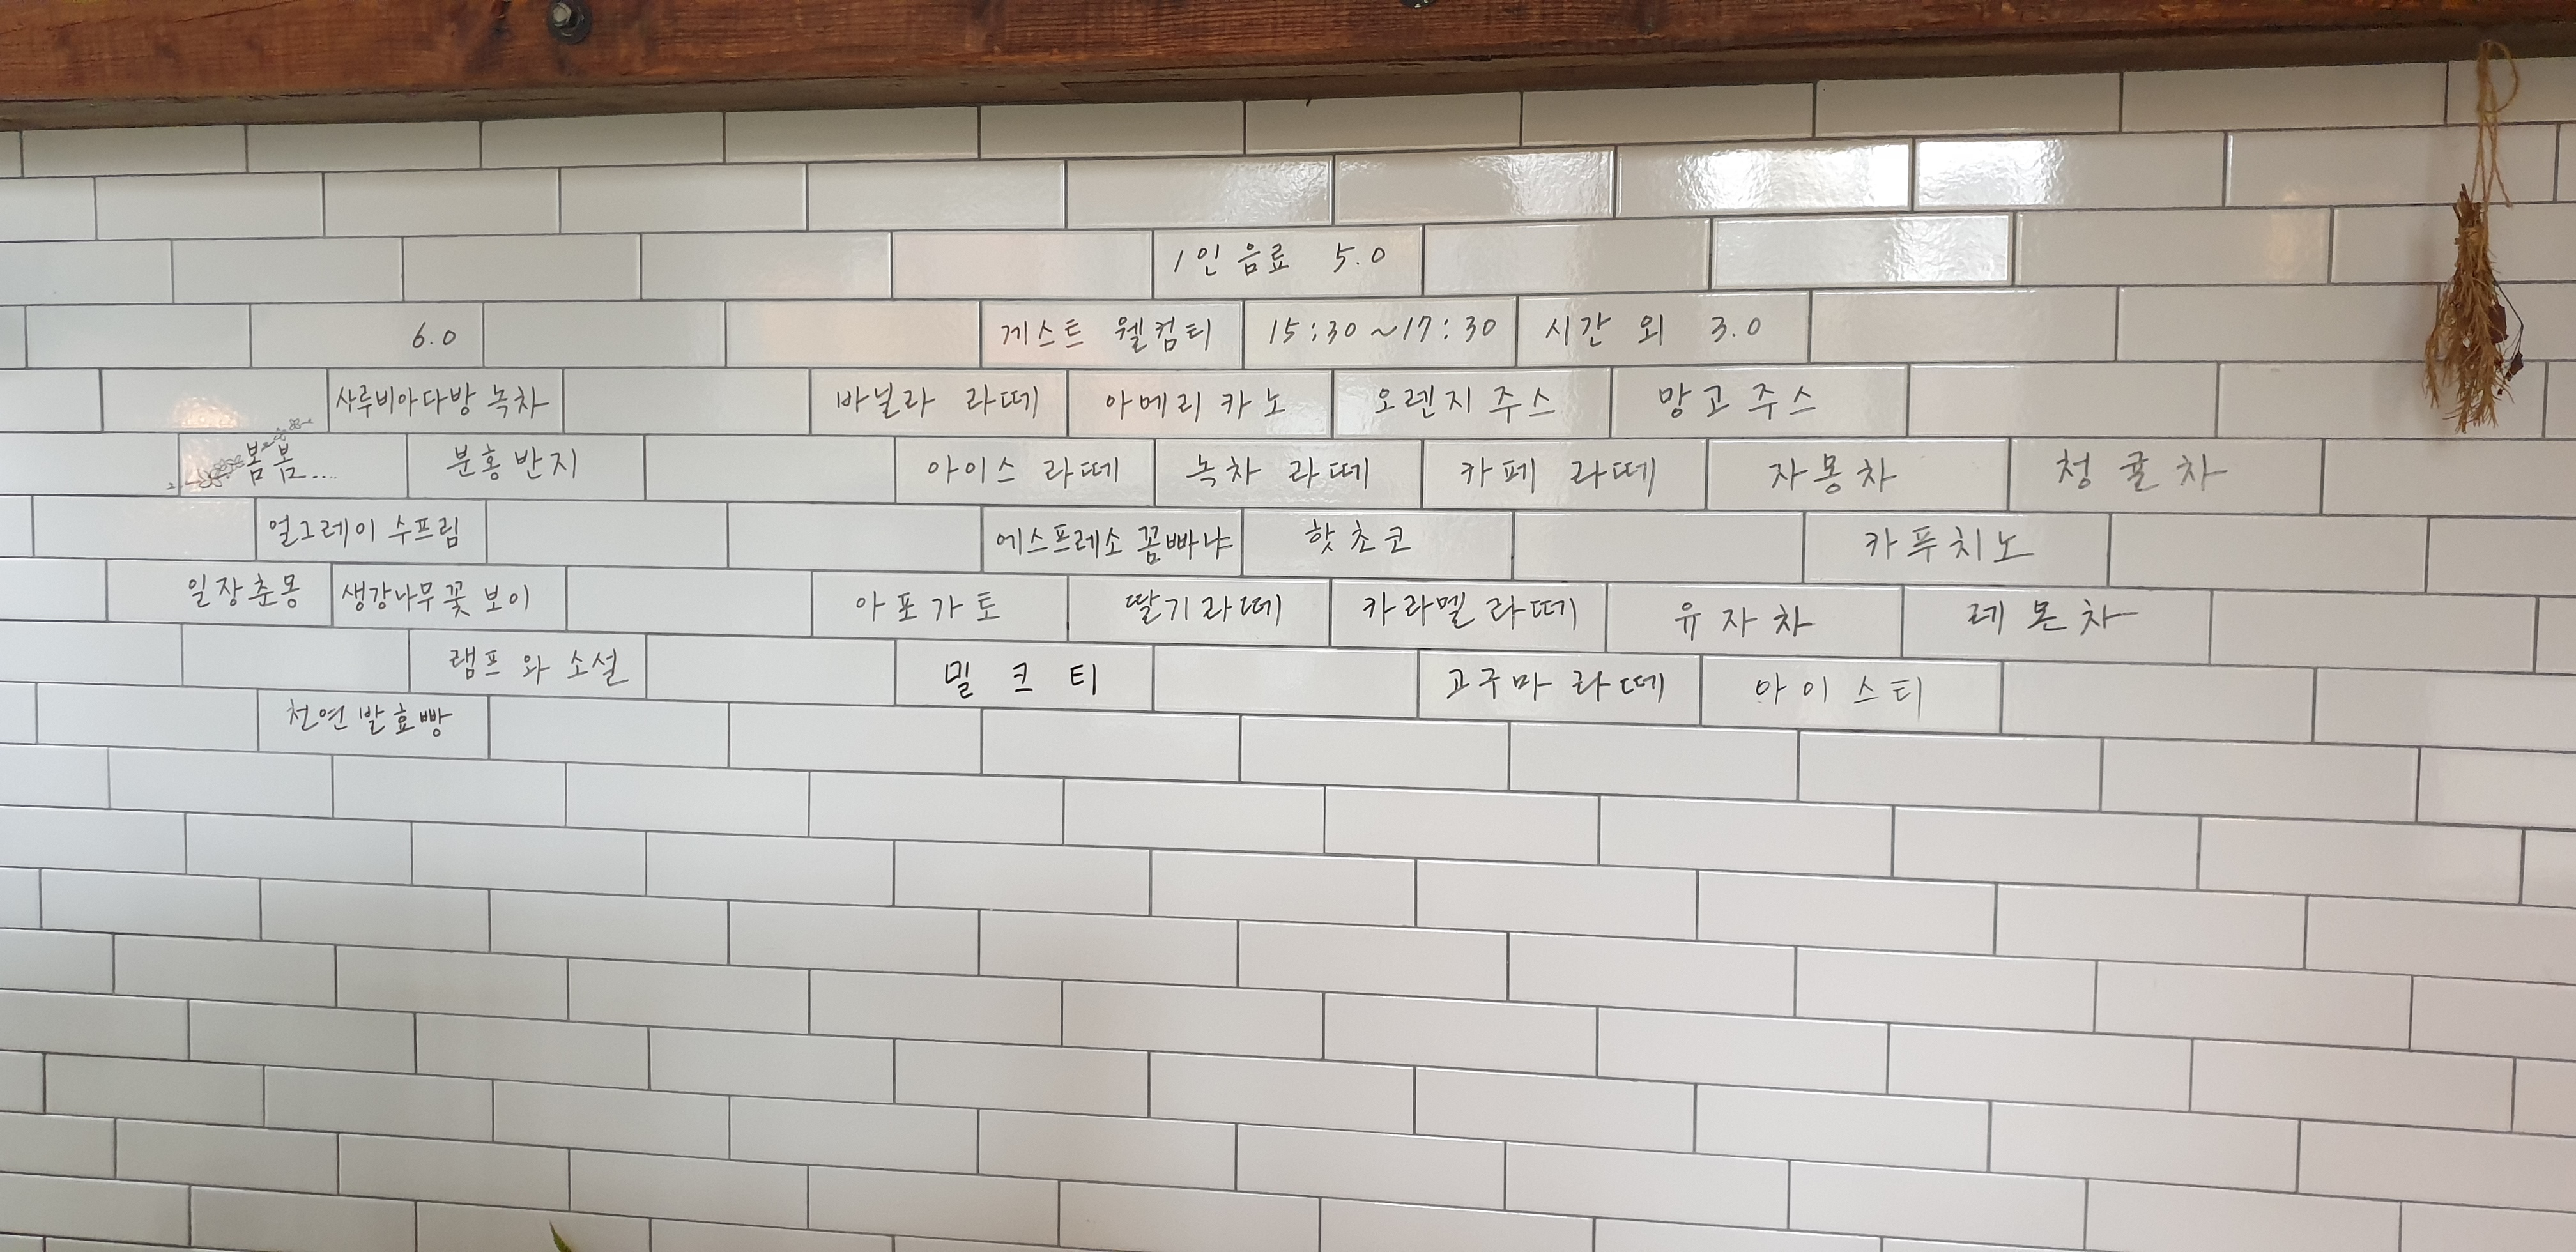 1인 음료 5.0
6.0 게스트 웰컴티 15:30~17:30 시간 외 3.0
사루비아다방 녹차 바닐라 라떼 아메리카노 오렌지 주스 망고 주스
봄봄... 분홍반지 아이스 라떼 녹차 라떼 카페 라떼 자몽차 청귤차
얼그레이 수프림 에스프레소 꼼빠냐 핫초코 카푸치노
일장춘몽 생강나무꽃 보이 아포가토 딸기라떼 카라멜 라떼 유자차 레몬차
램프와 소설 밀크티 고구마 라떼 아이스티
천연발효빵